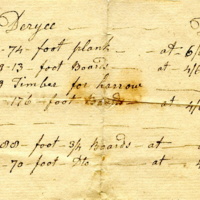 Deryce
- 74 - foot plank - at 6/
- 13 - foot Boards - at 4/6
Timber for harrow
- 176 - foot Boards - at 4/
- 88 - foot 3/4 Boards - at
- 70 - foot Do - at